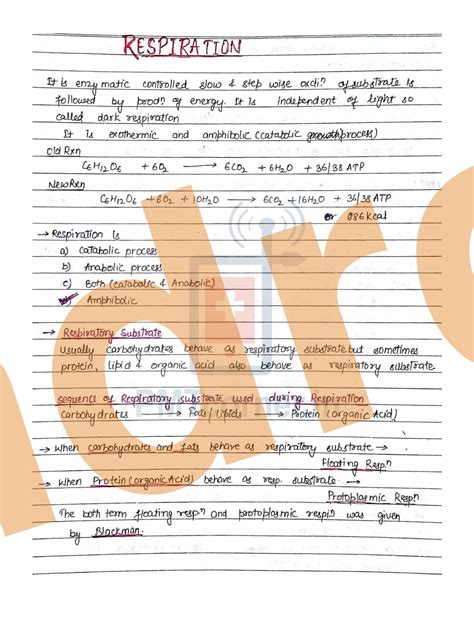 RESPIRATION
It is enzymatic controlled slow & step wise oxdiⁿ of substrate is
followed by prodⁿ of energy. It is independent of light so
called dark respiration
It is exothermic and amphibolic (catabolic process)
Old Rxn
C6H12O6 + 6O2 → 6CO2 + 6H2O + 36/38 ATP
New Rxn
C6H12O6 + 6O2 + 10H2O → 6CO2 + 16H2O + 36/38 ATP
or 686 Kcal
→ Respiration is
a) Catabolic process
b) Anabolic process
c) Both (catabolic & Anabolic)
Amphibolic
→ Respiratory Substrate
Usually carbohydrates behave as respiratory substrate but sometimes
protein, lipid & organic acid also behave as respiratory substrate.
sequence of Respiratory substrate used during Respiration
Carbohydrates → Fats/Lipids → Protein (organic Acid)
→ When carbohydrates and fats behave as respiratory substrate →
Floating Respⁿ
→ When Protein (organic Acid) behave as resp. substrate →
Protoplasmic Respⁿ
The both term floating respⁿ and protoplasmic respiⁿ was given
by Blackman.